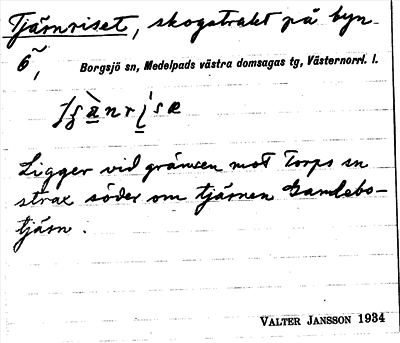 Tjärnriset, skogstrakt på byn
6~,
Borgsjö sn, Medelpads västra domsagas tg, Västernorrl. l.
Ligger vid gränsen mot Torps sn
strax söder om tjärnen Gamlebo-
tjärn.
VALTER JANSSON 1934